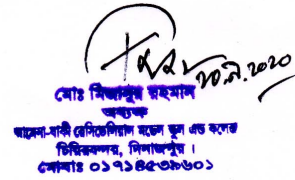 ২০.৯.২০২০
মোঃ মিজানুর রহমান
অধ্যক্ষ
আমেনা-বাকী রেসিডেন্সিয়াল মডেল স্কুল এন্ড কলেজ
চিরিরবন্দর, দিনাজপুর ।
মোবাঃ ০১৭১৪৫৩৯৬০১